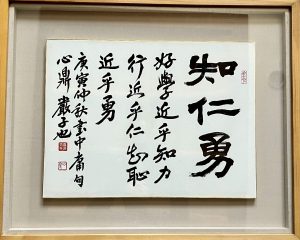 知仁勇
好學近乎知力
行近乎仁知恥
近乎勇
庚寅仲秋書中庸句
心鼎 嚴子也